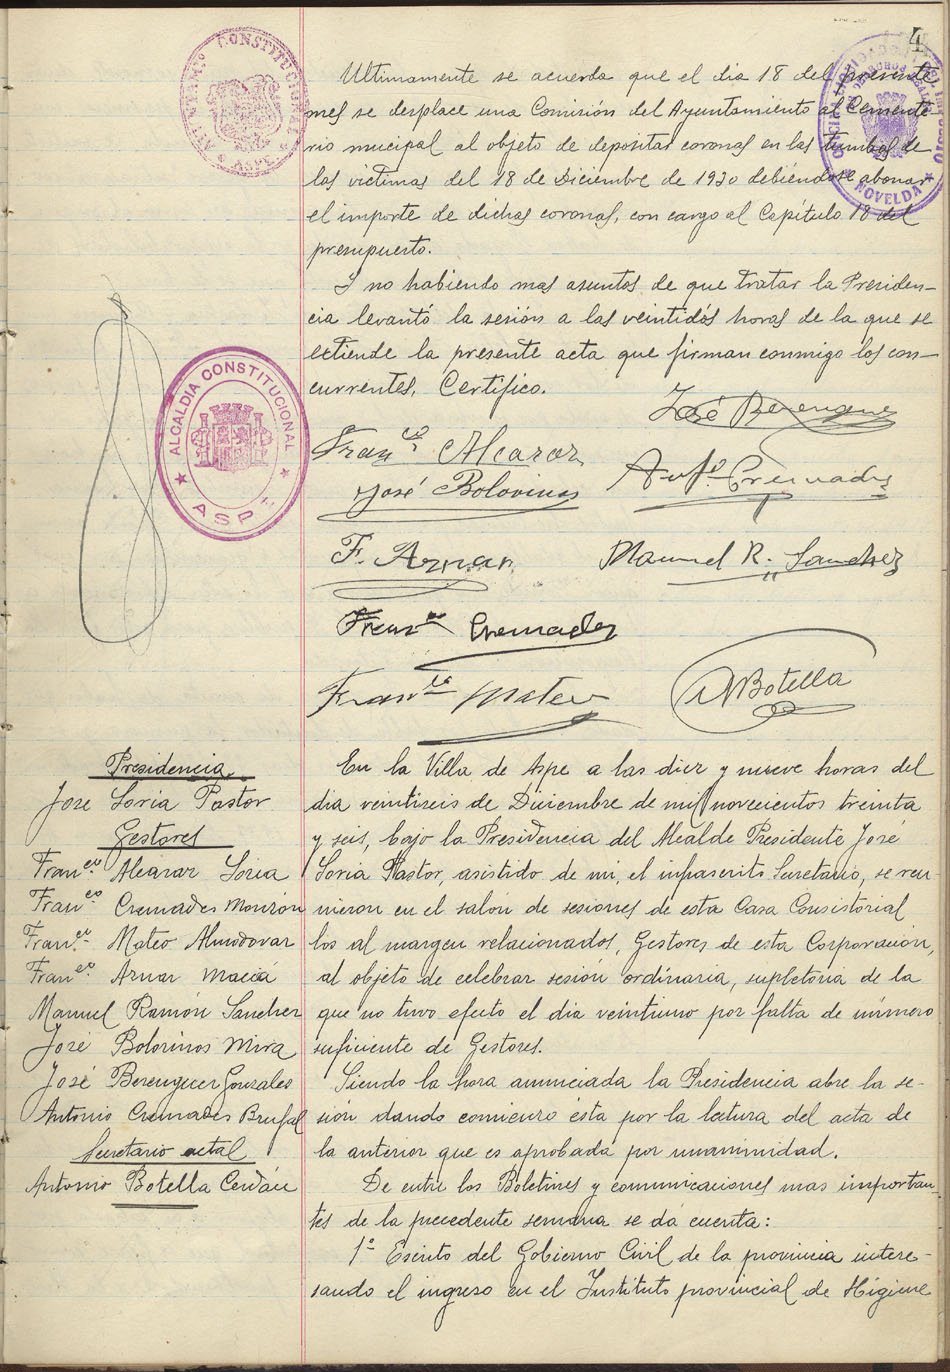 4
AYUNTAMTO CONSTITUCIONAL
ASPE
NOVELDA
Ultimamente se acuerda que el dia 18 del presente
mes se desplace una Comisión del Ayuntamiento al Cemente-
rio muicipal al objeto de depositar coronas en las tumbas de
las victimas del 18 de Diciembre de 1930 debiéndose abonar
el importe de dichas coronas, con cargo al Capítulo 18 del
presupuesto.
Y no habiendo mas asuntos de que tratar la Presiden-
cia levantó la sesión a las veintidós horas de la que se
extiende la presente acta que firman conmigo los con-
currentes. Certifico.
ALCALDIA CONSTITUCIONAL
ASPE
José Berenguer
Franco Alcaraz
José Bolorinos
Anto Cremades
F. Aznar
Manuel R. Sanchez
Franco Cremades
Franco Mateo
A Botella
Presidencia
Jose Soria Pastor
Gestores
Franco Alcaraz Soria
Franco Cremades Monzón
Franco Mateo Almodovar
Franco Aznar Maciá
Manuel Ramón Sanchez
José Bolorinos Mira
José Berenguer Gonzales
Antonio Cremades Brufal
Secretario actal
Antonio Botella Cerdán
En la Villa de Aspe a las diez y nueve horas del
dia veintiseis de Diciembre de mil novecientos treinta
y seis, bajo la Presidencia del Alcalde Presidente José
Soria Pastor, asistido de mi, el infrascrito Secretario, se reu-
nieron en el salón de sesiones de esta Casa Consistorial
los al margen relacionados, Gestores de esta Corporación,
al objeto de celebrar sesión ordinaria, supletoria de la
que no tuvo efecto el dia veintiuno por falta de número
suficiente de Gestores.
Siendo la hora anunciada la Presidencia abre la se-
sión dando comienzo ésta por la lectura del acta de
la anterior que es aprobada por unanimidad.
De entre los Boletines y comunicaciones mas importan-
tes de la precedente semana se da cuenta:
1º Escrito del Gobierno Civil de la provincia intere-
sando el ingreso en el Instituto provincial de Higiene